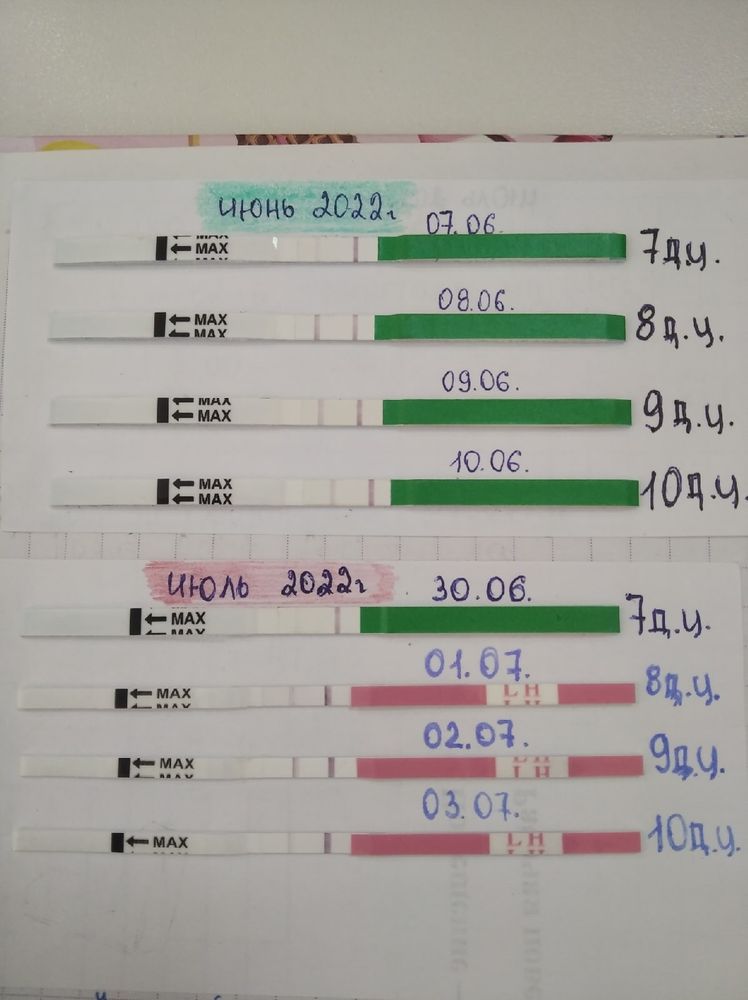 июнь 2022г
07.06.
MAX
7д.ц.
08.06.
MAX
MAX
8д.ц.
09.06.
MAX
MAX
9д.ц.
10.06.
MAX
MAX
10д.ц.
июль 2022г
30.06.
MAX
MAX
7д.ц.
01.07.
MAX
LH
8д.ц.
02.07.
MAX
MAX
LH
LH
9д.ц.
03.07.
MAX
LH
10д.ц.